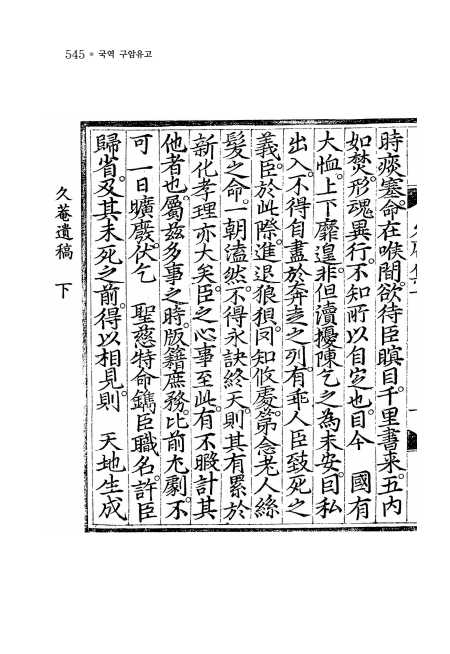 545 ● 국역 구암유고
時痰塞。命在喉間。欲待臣瞑目。千里書来。五內
如焚。形魂異行。不知所以自定也。目今 國有
大恤。上下靡遑。非但瀆擾陳乞之為未安。曰私
出入。不得自盡於奔走之列。有乖人臣致死之
義。臣於此際。進退狼狽。罔知攸處。第念老人絲
髮之命。一朝溘然。不得永訣終天。則其有累於
新化孝理亦大矣。臣之心事至此。有不暇計其
他者也。屬玆多事之時。版籍庶務。比前尤劇。不
可一日曠廢。伏乞 聖慈特命鐫臣職名。許臣
歸省。及其未死之前。得以相見。則 天地生成
久菴遺稿 下